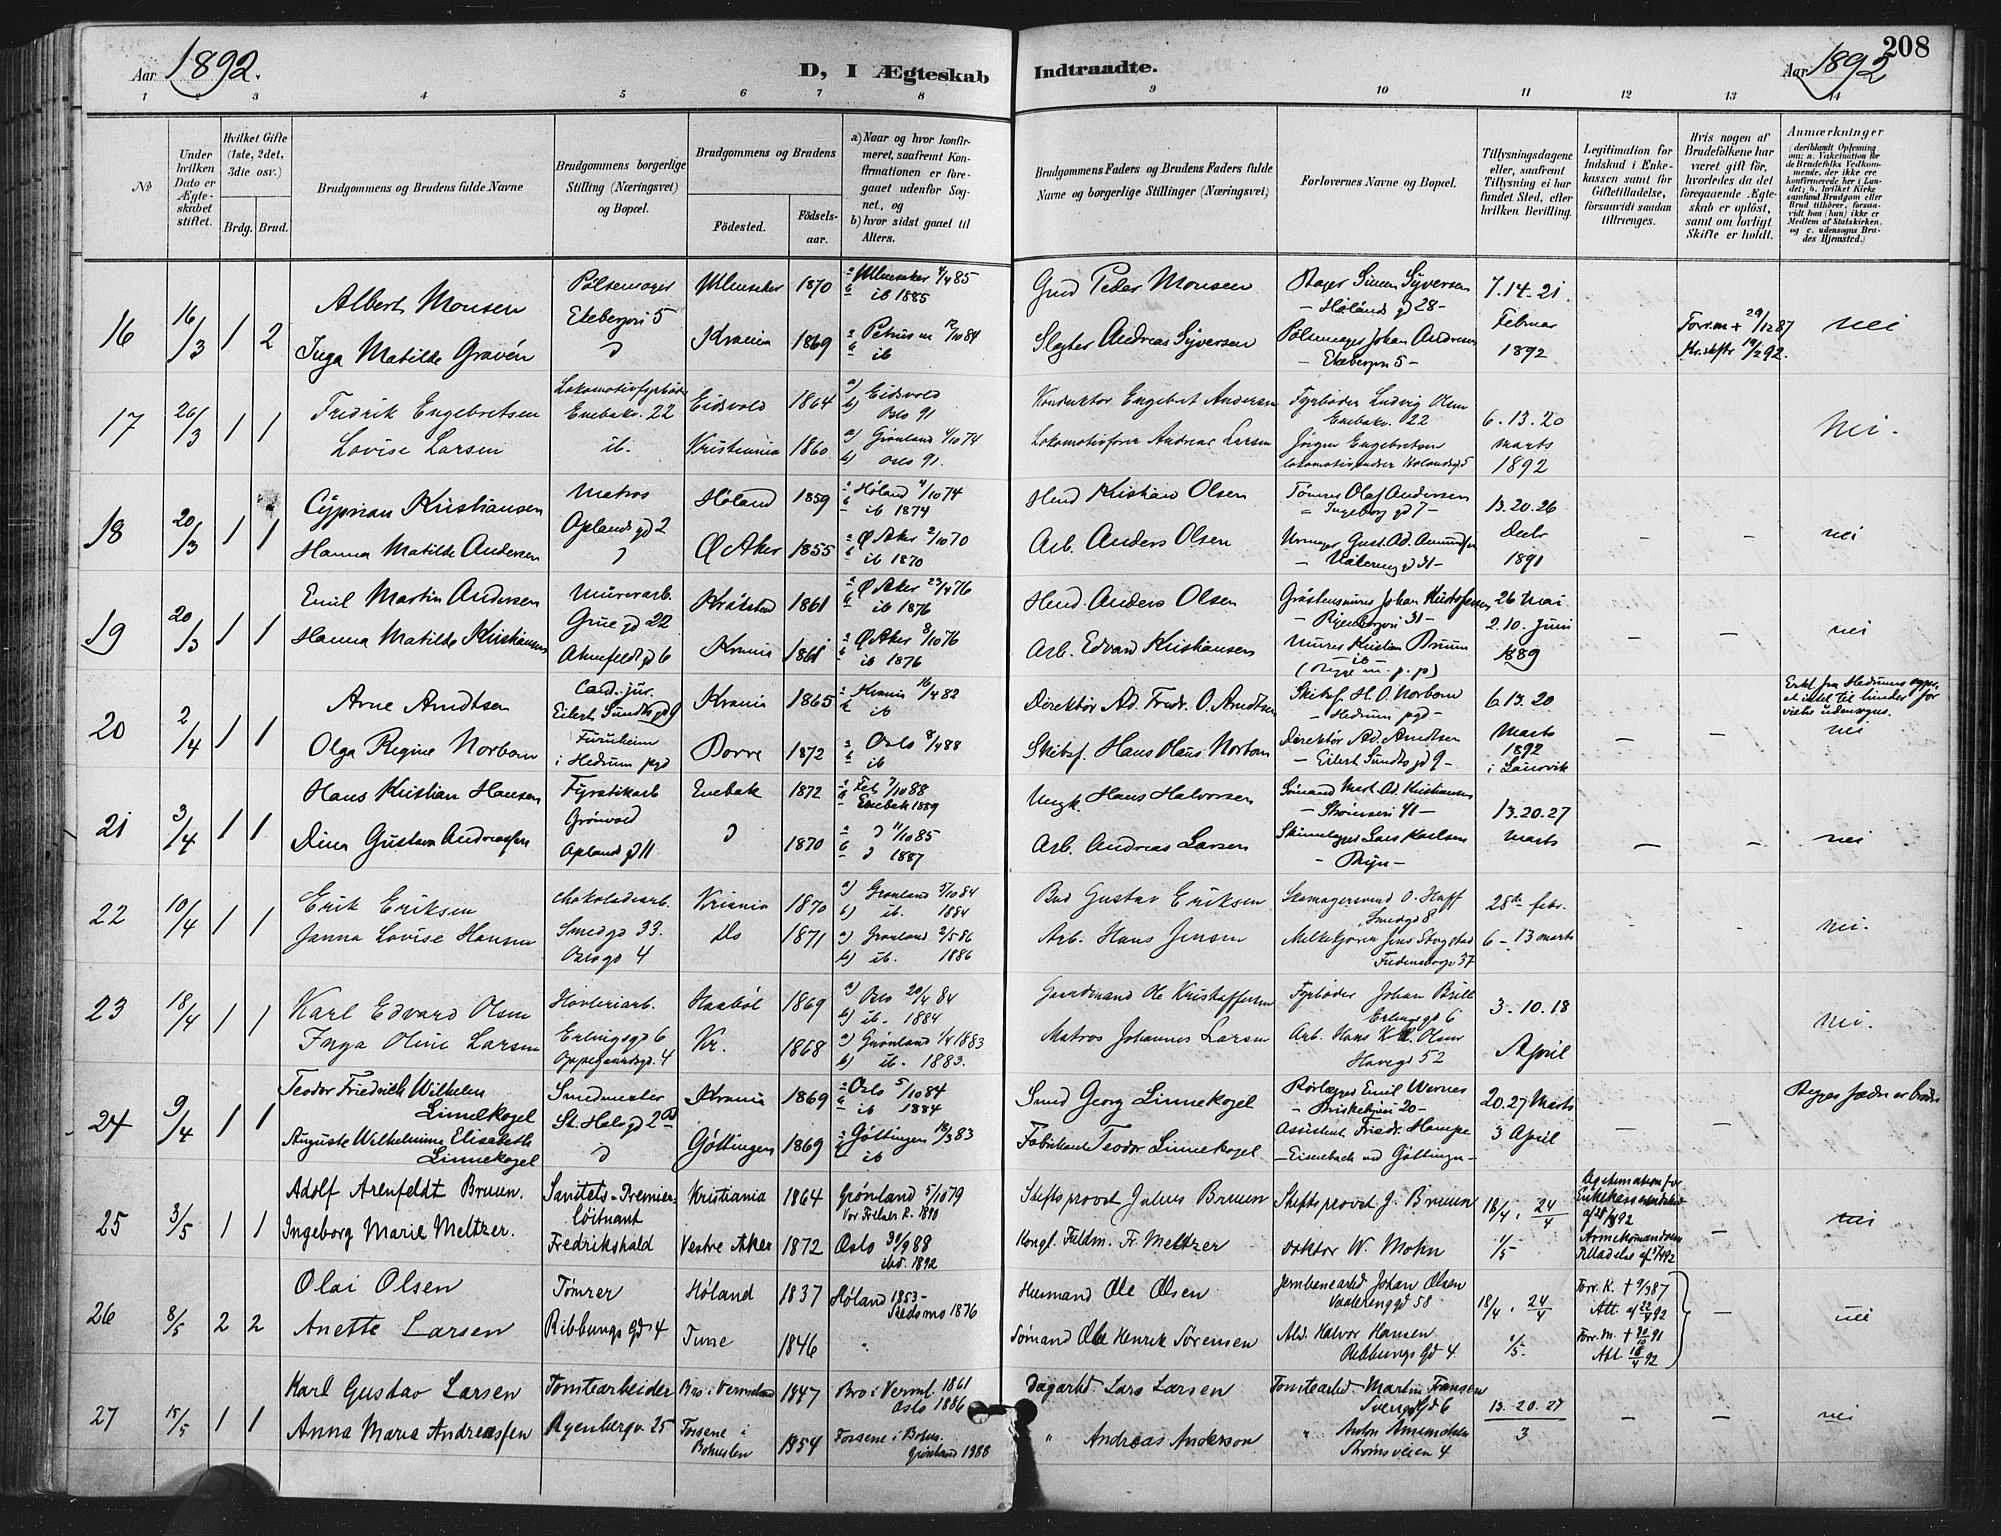 Aar 1892.
D, I Ægteskab Indtraadte.
Aar 1892
208
1 2 3 4 5 6 7 8 9 10 11 12 13 14
No
Under hvilken Dato er Ægteskabet stiftet.
Hvilket Gifte (1ste, 2det, 3die osv.)
Brdg. Brud.
Brudgommens og Brudens fulde Navne
Brudgommens borgerlige Stilling (Næringsvei) og Bopæl.
Brudgommens og Brudens
Fødested.
Fødselsaar.
a) Naar og hvor konfirmeret, saafremt Konfirmationen er foregaaet udenfor Sognet, og
b) hvor sidst gaaet til Alters.
Brudgommens Faders og Brudens Faders fulde Navne og borgerlige Stillinger (Næringsvei)
Forlovernes Navne og Bopæl.
Tillysningsdagene eller, saafremt Tillysning ei har fundet Sted, efter hvilken Bevilling.
Legitimation for Indskud i Enkekassen samt for Giftetilladelse, forsaavidt saadan tiltrænges.
Hvis nogen af Brudefolkene har været gift før, hvorledes da det foregaaende Ægteskab er opløst, samt om lovligt Skifte er holdt.
Anmærkninger
(deriblandt Oplysning om: a. Vakcination for de Brudefolks Vedkommende, der ikke ere konfirmerede her i Landet; b. hvilket Kirkesamfund Brudgom eller Brud tilhører, forsaavidt han (hun) ikke er Medlem af Statskirken, og c. udensogns Brudes Hjemsted.)
16 16/3 1 2 Albert Monsen Pølsemager Ekebergvei 5 Ullensaker 1870 Ullensaker 4/4 85 ib 1885 Peder Monsen Simen Syversen Hølands gd 28 7. 14. 21. Februar 1892
Inga Matilde Gravén Krania 1869 Petrus m 12/10 84 ib Slagter Andreas Syversen Pølsemager Johan Andersen Ekebergvei 5 29/12 87 nei
17 26/3 1 1 Fredrik Engebretsen Enebakv. 22 Eidsvold 1864 a) Eidsvold b) Oslo 91 Konduktør Engebret Andersen Fyrbøder Ludvig Olsen Enebakv. 22 6. 13. 20 marts 1892 Nei.
Lovise Larsen ib. Kristiania 1860 a) Grønland 4/10 74 b) Oslo 91. Lokomotivfører Andreas Larsen Jørgen Engebretsen
18 20/3 1 1 Cyprian Kristiansen Matros Oplands gd 2 Høland 1859 Høland 4/10 74 ib 1874 Kristian Olsen Tømrer Olaf Andersen Ingeborg gd 7 13. 20. 26 Decbr 1891
Hanna Matilde Andersen Ø Aker 1855 Ø Aker 2/10 70 ib 1870 Arb. Anders Olsen Urmager Gust. Ad. Vålereng gd 31 nei
19 20/3 1 1 Emil Martin Andersen Murerarb. Grue gd 22 Kråkstad 1861 Ø Aker 23/4 76 ib 1876 Anders Olsen Johan Kristofersen Ryenbergvei 31 26 Mai 2. 10. Juni 1889
Hanna Matilde Kristiansen Almefeldt gd 6 Krania 1861 Ø Aker 8/10 76 ib 1876 Arb. Edvard Kristiansen Murer Kristian Bruun nei
20 2/4 1 1 Arne Arndtsen Cand. jur. Eilert Sundts gd 9 Krania 1865 Krania 16/4 82 ib Direktør Ad. Fredr. O. Arndtsen Skibsf. H. O. Norbom Hedrum pgd 6. 13. 20 Marts 1892 i Laurvik
Olga Regine Norbom Furuheim i Hedrum pgd Borre 1872 Oslo 8/4 88 ib Skibsf. Hans Hans Norbom Direktør Ad. Arndtsen Eilert Sundts gd 9 nei
21 3/4 1 1 Hans Kristian Hansen Fyrstikarb Grønvold Enebak 1872 Fet 7/10 88 Enebak 1889 Hans Halvorsen Sømand Mart. Ad. Kristiansen Strømsvei 41 13. 20. 27 Marts
Dina Gustava Andreassen Oplands gd 11 1870 11/10 85 1887 Arb. Andreas Larsen Lars Karlsen Bryn nei
22 10/4 1 1 Erik Eriksen Chokoladearb. Smedgd 33. Kriania 1870 a) Grønland 5/10 84 b) ib. 1884 Bud Gustav Eriksen Skomagersvend O. Hoff Smedgd 8 28de febr.
Janna Lovise Hansen Oslogd 4 Do 1871 a) Grønland 2/5 86 b) ib. 1886 Arb. Hans Jensen Melkekjører Jens Fredensborgv 37 6 - 13 marts nei.
23 18/4 1 1 Karl Edvard Olsen Høvleriarb. Erlingsgd 6 Haabøl 1869 a) Oslo 20/4 84 b) ib. 1884 Gaardmand Ole Kristoffersen Fyrbøder Johan Erlingsgd 6 3. 10. 18
Inga Oline Larsen Oppegaardsgd. 4 Kr. 1868 a) Grønland 1/4 1883 b) ib. 1883. Matros Johannes Larsen Arb. Hans Olsen Havegd 52 April Nei.
24 9/4 1 1 Teodor Friedrich Wilhelm Linnekogel Smedmester St. Hals gd 2 Krania 1869 Oslo 5/10 84 ib 1884 Smed Georg Linnekogel Rørlægger Emil Werner Briskebyvei 20 20. 27 Marts 3 April
Auguste Wilhelmine Elisabeth Linnekogel Göttingen 1869 Göttingen 18/3 83 ib Fabrikant Teodor Linnekogel Assistent Friedr. Hampe Eisenbach ved Göttingen Begges fædre er brødre
25 3/5 1 1 Adolf Arenfeldt Bruun. Sanitets-Premierløitnant Kristiania 1864 Grønland 5/10 79 Vor Frelsers K. 1890 Stiftsprovst Julius Bruun Stiftsprovst J. Bruun 18/4, 24/4
Ingeborg Marie Meltzer. Fredrikshald Vestre Aker 1872 Oslo 30/9 88 ibd. 1892 Kongl. Fuldm. Fr. Meltzer Doktor W. Mohn 1/5 nei
26 8/5 2 2 Olai Olsen Tømrer Høland 1837 Høland 1853 - Redsmo 1876 Husmand Ole Olsen Jernbanearbd Johan Olsen Vaalerenggd 58 18/4, 24/4 Forr. K. † 9/3 87 Att. af 22/4 92
Anette Larsen Ribbungs gd 4 Tune 1846 " Sømand Ole Henrik Sørensen Halvor Hansen Ribbungs gd 4 1/5. Forr. M. † 20/10 91 Att. 18/4 92 nei
27 15/5 1 1 Karl Gustav Larsen Tomtearbeider Bro i Vermeland 1847 Bro i Verml. 1861 Oslo 1886 Dagarbd. Lars Larsen Tomtearbd. Martin Fransen Sverregd 6 13. 20. 27
Anna Maria Andreassen Ryenbergv. 25 Fossene i Bohuslen 1854 Fossene i Bohus. Grønland 1888 " Andreas Anderson " Anton Amundsen Strømsveien 4 3 nei